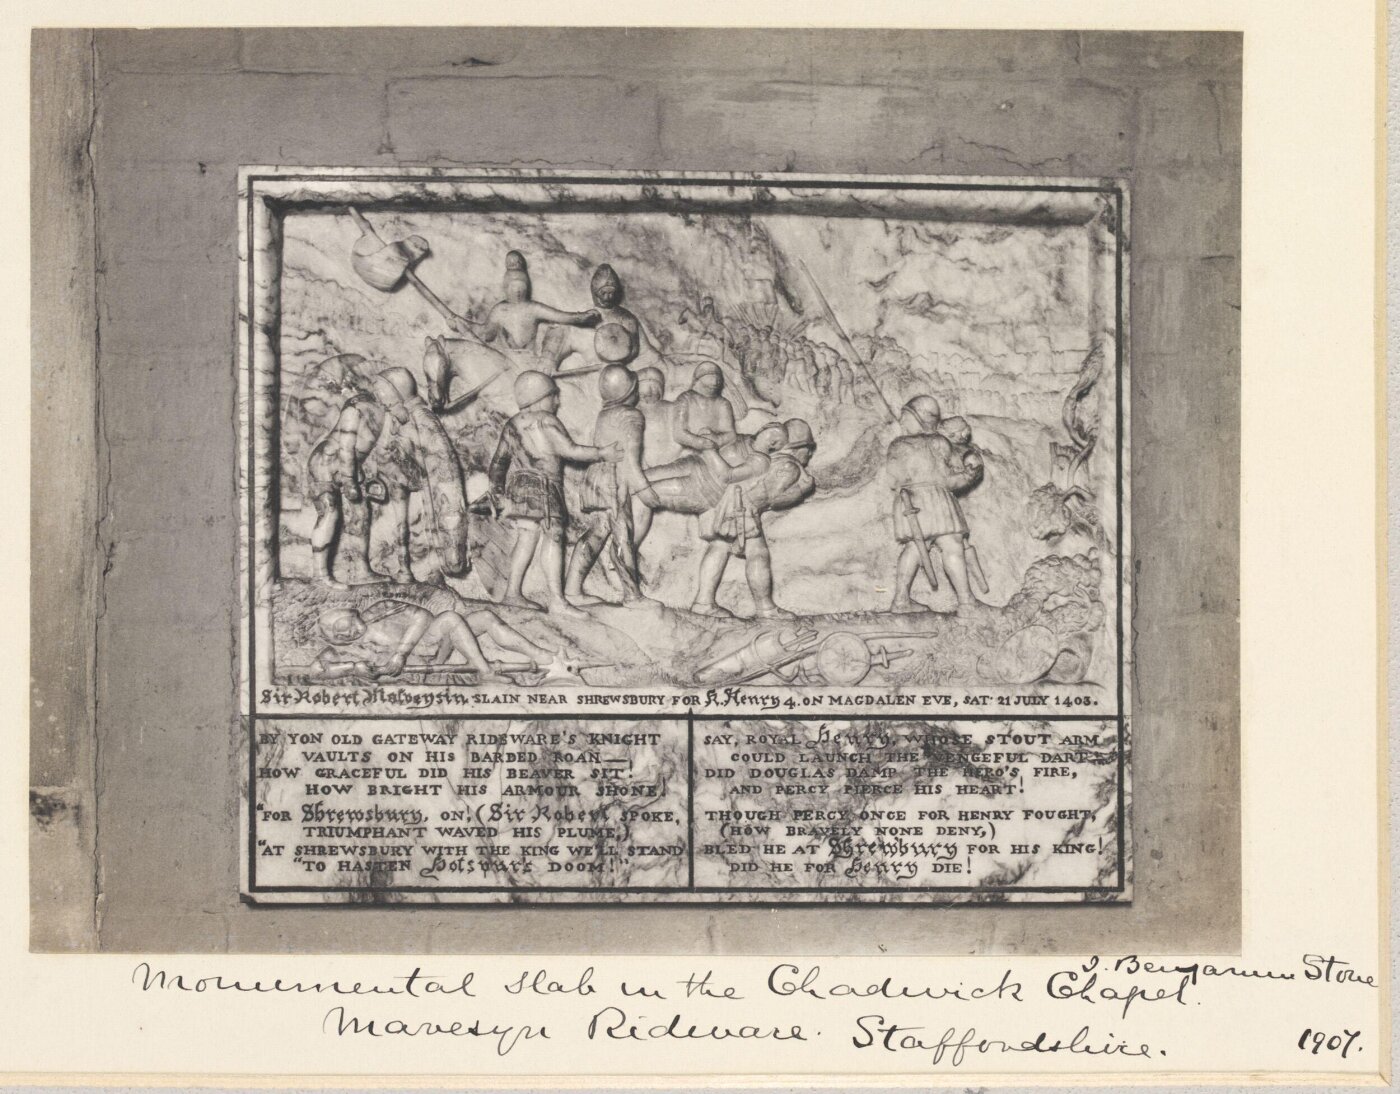 Sir Robert Malveysin, SLAIN NEAR SHREWSBURY FOR K. Henry 4. ON MAGDALEN EVE, SAT. 21 JULY 1403.
BY YON OLD GATEWAY RIDEWARE'S KNIGHT
VAULTS ON HIS BARDED ROAN—
HOW GRACEFUL DID HIS BEAVER SIT!
HOW BRIGHT HIS ARMOUR SHONE!
"FOR Shrewsbury, ON! (Sir Robert SPOKE,
TRIUMPHANT WAVED HIS PLUME,)
"AT SHREWSBURY WITH THE KING WE'LL STAND
"TO HASTEN Hotspur's DOOM!"
SAY, ROYAL Henry, WHOSE STOUT ARM
COULD LAUNCH THE VENGEFUL DART,
DID DOUGLAS DAMP THE HERO'S FIRE,
AND PERCY PIERCE HIS HEART!
THOUGH PERCY ONCE FOR HENRY FOUGHT,
(HOW BRAVELY NONE DENY,)
BLED HE AT Shrewsbury FOR HIS KING!
DID HE FOR Henry DIE!
Monumental slab in the Chadwick Chapel.
J. Benjamin Stone
Mavesyn Rideware. Staffordshire.
1907.